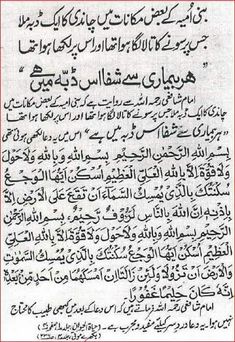 بنی اُمیہ کے بعض مکانات میں چاندی کا ایک ڈبہ ملا
جس پر سونے کا تالا لگا ہوا تھا اور اس پر لکھا ہوا تھا
"ھر بیماری سے شفا اس ڈبہ میں ھے"
امام شافعی رحمہ اللہ سے روایت ہے کہ بنی امیہ کے بعض مکانات میں
چاندی کا ایک ڈبہ ملا جس پر سونے کا تالا لگا ہوا تھا اور اس پر لکھا ہوا تھا
"ہر بیماری سے شفا اس ڈبہ میں ہے" اس میں یہ دعا لکھی ہوئی تھی
بِسْمِ اللهِ الرَّحْمٰنِ الرَّحِیْمِ بِسْمِ اللهِ وَبِاللهِ وَلَاحَوْلَ
وَلَا قُوَّةَ اِلَّا بِاللهِ الْعَلِیِّ الْعَظِیْمِ اُسْکُنْ اَیُّهَا الْوَجَعُ
سَکَّنْتُكَ بِالَّذِیْ یُمْسِكُ السَّمَآءَ اَنْ تَقَعَ عَلَی الْاَرْضِ اِلَّا
بِاِذْنِهٖ اِنَّ اللهَ بِالنَّاسِ لَرَءُوْفٌ رَّحِیْمٌ بِسْمِ اللهِ الرَّحْمٰنِ
الرَّحِیْمِ بِسْمِ اللهِ وَبِاللهِ وَلَاحَوْلَ وَلَا قُوَّةَ اِلَّا بِاللهِ الْعَلِیِّ
الْعَظِیْمِ اُسْکُنْ اَیُّهَا الْوَجَعُ سَکَّنْتُكَ بِالَّذِیْ یُمْسِكُ السَّمٰوٰتِ
وَالْاَرْضَ اَنْ تَزُوْلَا وَلَئِنْ زَالَتَا اِنْ اَمْسَکَهُمَا مِنْ اَحَدٍ مِّنْ بَعْدِهٖ
اِنَّهٗ کَانَ حَلِیْمًا غَفُوْرًا
امام شافعی رحمہ اللہ فرماتے ہیں کہ اس دعا کے بعد میں کبھی طبیب کا محتاج
نہیں ہوا۔ یہ دعا درد سر کیلئے مفید و مجرب ہے۔